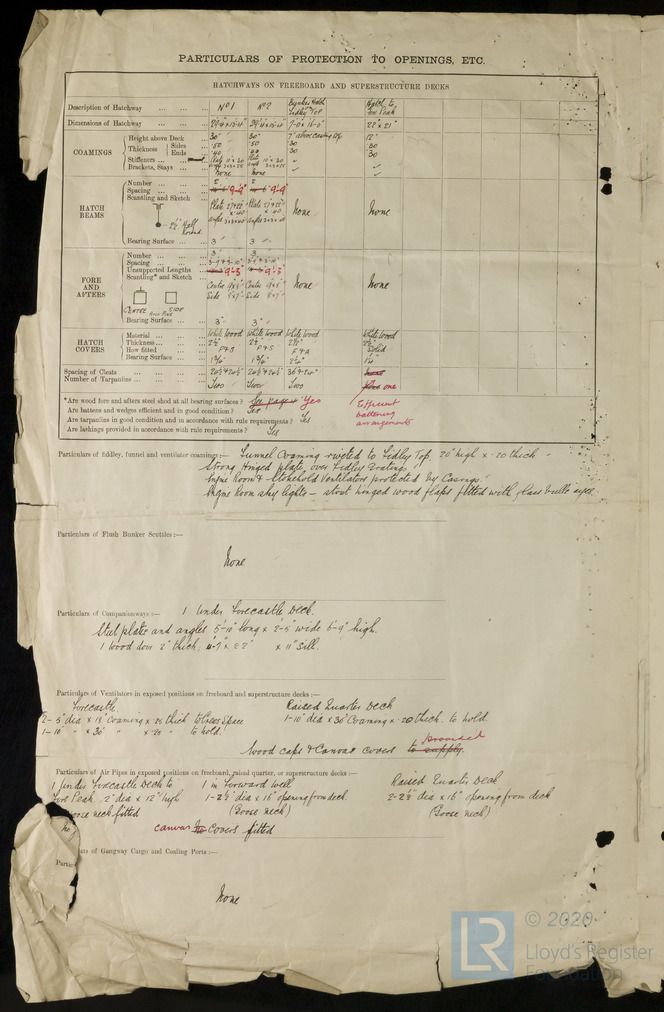 PARTICULARS OF PROTECTION TO OPENINGS, ETC.
HATCHWAYS ON FREEBOARD AND SUPERSTRUCTURE DECKS
Description of Hatchway ... ... ... No 1 No 2 Bunker Hatch Fidley Top Hatch to Fore Peak
Dimensions of Hatchway ... ... ... 22" x 21"
COAMINGS
Height above Deck ... 30" 30" 7" above casing top 12"
Thickness Sides ... .50 .50 .30 .30
Ends ... .40 .40 .30 .30
Stiffeners ... ... ... Plate 10" x .30 Plate 10" x .30
Brackets, Stays ... ... None None
HATCH BEAMS
Number ... ... ... 2 2
Spacing ... ... ... 9'-9" 9'-9"
Scantling and Sketch Plate Plate None None
2½" Half Round
Bearing Surface ... ... 3" 3"
FORE AND AFTERS
Number ... ... ... 3 3
Spacing ... ... ...
Unsupported Lengths 9'-3" 9'-3"
Scantling* and Sketch Centre Centre None None
Side Side
CENTRE SIDE
Bearing Surface ... ... 3" 3"
HATCH COVERS
Material ... ... ... White Wood White Wood White Wood White Wood
Thickness ... ... ... 2½" 2½" 2½" 2½"
How fitted ... ... F & A Solid
Bearing Surface ... ... 1¾" 1¾"
Spacing of Cleats ... ... ...
Number of Tarpaulins ... ... ... Two Two Two one
*Are wood fore and afters steel shod at all bearing surfaces? Yes
Efficient battening arrangements
Are battens and wedges efficient and in good condition? Yes
Are tarpaulins in good condition and in accordance with rule requirements? Yes
Are lashings provided in accordance with rule requirements? Yes
Particulars of fiddley, funnel and ventilator coamings:— Funnel Coaming riveted to Fidley Top, 20" high x .20 thick
Strong hinged plate over Fidley Gratings
Engine Room & Stokehold Ventilators protected by Casings
Engine Room sky lights — stout hinged wood flaps fitted with glass bulls eyes.
Particulars of Flush Bunker Scuttles:—
None
Particulars of Companionways:— 1 Under Forecastle Deck.
Steel plates and angles 5'-10" long x 2'-5" wide 6'-9" high.
1 Wood door 2" thick, x 22" x 11" Sill.
Particulars of Ventilators in exposed positions on freeboard and superstructure decks:—
Forecastle. Raised Quarter Deck
2 - 5" dia x 18" Coaming x .25 thick to Crew Space 1 - 10" dia x 36" Coaming x .20 thick. to hold.
1 - 10" " x 30" " x .20 " to hold.
Wood caps & Canvas covers provided to supply.
Particulars of Air Pipes in exposed positions on freeboard, raised quarter, or superstructure decks:—
1 Under Forecastle Deck to 1 in Forward Well Raised Quarter Deck
Fore Peak, 2" dia x 12" high 1 - 2½" dia x 16" opening from deck. 2 - 2½" dia x 16" opening from deck
goose neck fitted (Goose neck) (Goose neck)
canvas no Covers fitted
of Gangway Cargo and Coaling Ports:—
Partic
None
LR
© 2020
Lloyd's Register
Foundation